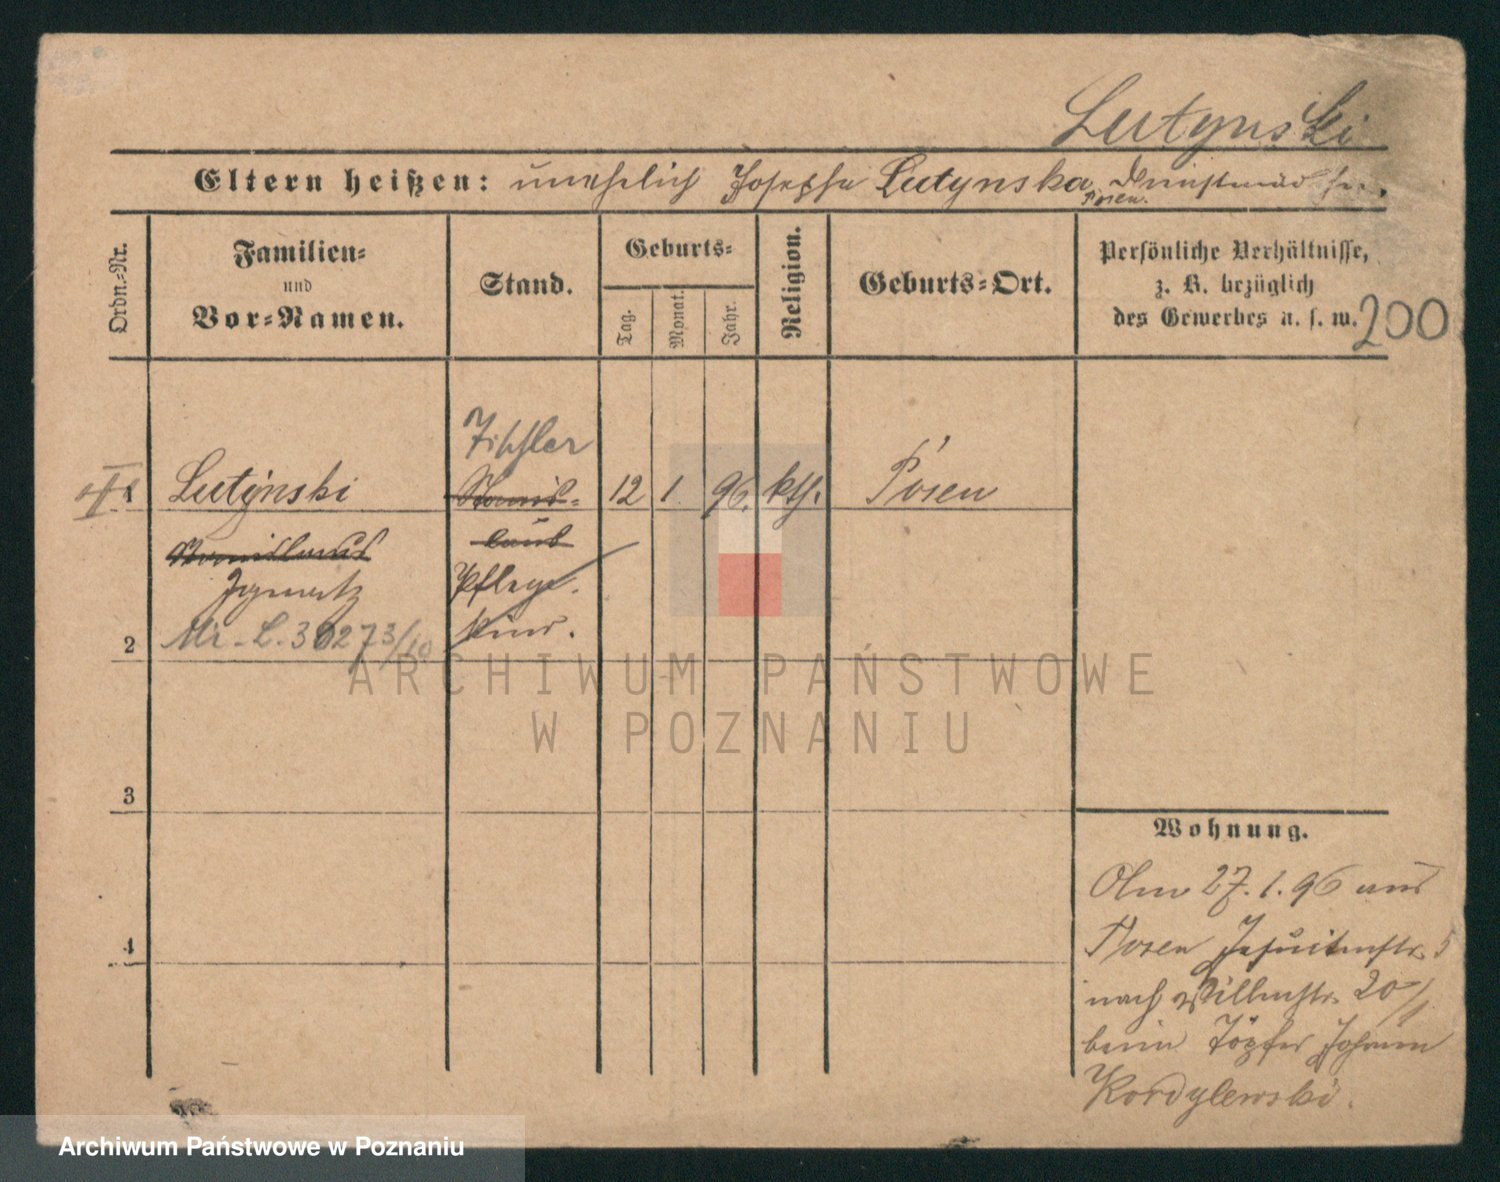 Lutynski
Eltern heißen: unehelich Josepha Lutynska, Dienstmädchen.
Posen.
Ordn.-Nr.
Familien-
und
Vor-Namen.
Stand.
Geburts-
Tag.
Monat.
Jahr.
Religion.
Geburts-Ort.
Persönliche Verhältnisse,
z. B. bezüglich
des Gewerbes u. s. w.
200
Tischler
1 Lutynski Stanis- 12 1. 96. kth. Posen
Stanislaus laus
Ignatz Pflege-
2 Mr. L. 3273/10 kind.
3
Wohnung.
4
Ohm 27.1.96 aus
Posen Jesuitenstr. 5
nach Billenstr. 20/1
beim Töpfer Johann
Kordylewski.
ARCHIWUM PAŃSTWOWE
W POZNANIU
Archiwum Państwowe w Poznaniu